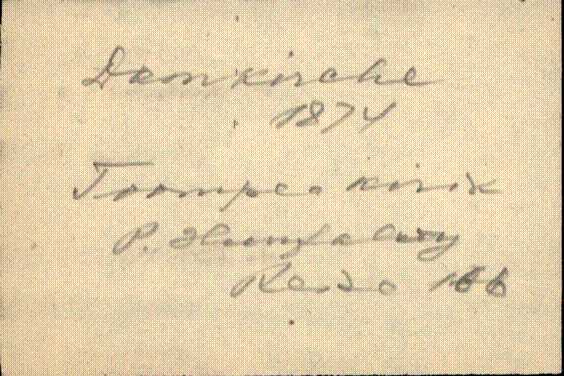 Domkirche
1874
Toompea kirik
P. Hunfalvy
Reise 166